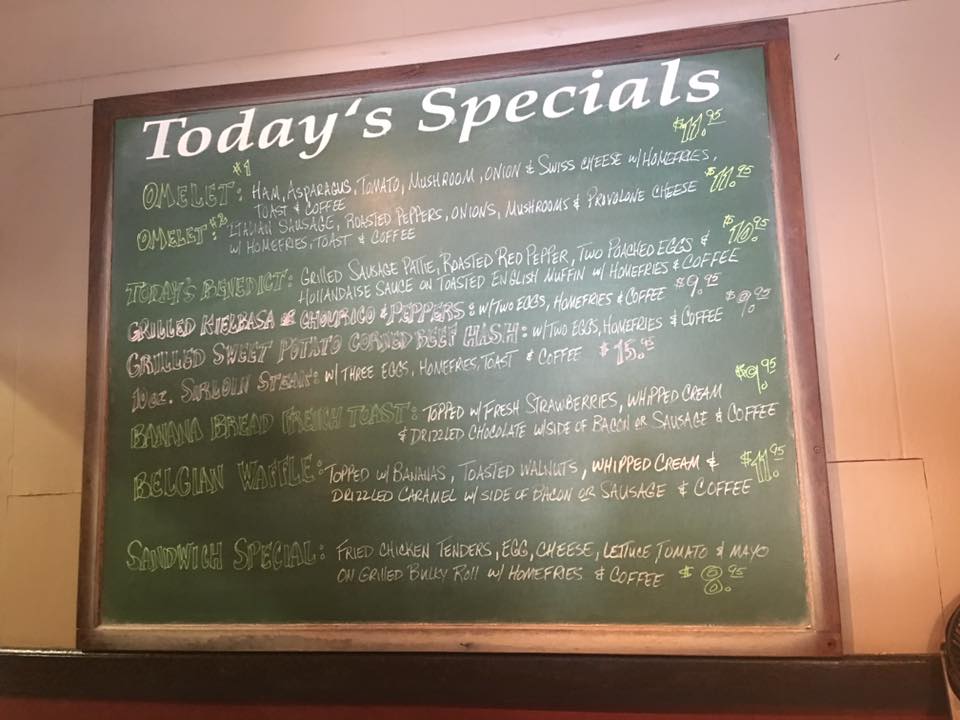 Today's Specials
OMELET: #1 HAM, ASPARAGUS, TOMATO, MUSHROOM, ONION & SWISS CHEESE W/ HOMEFRIES, $11.95
TOAST & COFFEE
OMELET: #2 ITALIAN SAUSAGE, ROASTED PEPPERS, ONIONS, MUSHROOMS & PROVOLONE CHEESE $11.95
W/ HOMEFRIES, TOAST & COFFEE
TODAY'S BENEDICT: GRILLED SAUSAGE PATTIE, ROASTED RED PEPPER, TWO POACHED EGGS & $10.95
HOLLANDAISE SAUCE ON TOASTED ENGLISH MUFFIN W/ HOMEFRIES & COFFEE
GRILLED KIELBASA & CHOURICO & PEPPERS: W/ TWO EGGS, HOMEFRIES & COFFEE $9.95
GRILLED SWEET POTATO CORNED BEEF HASH: W/ TWO EGGS, HOMEFRIES & COFFEE $9.95
10oz. SIRLOIN STEAK: W/ THREE EGGS, HOMEFRIES, TOAST & COFFEE $15.95
BANANA BREAD FRENCH TOAST: TOPPED W/ FRESH STRAWBERRIES, WHIPPED CREAM $9.95
& DRIZZLED CHOCOLATE W/ SIDE OF BACON OR SAUSAGE & COFFEE
BELGIAN WAFFLE: TOPPED W/ BANANAS, TOASTED WALNUTS, WHIPPED CREAM & $11.95
DRIZZLED CARAMEL W/ SIDE OF BACON OR SAUSAGE & COFFEE
SANDWICH SPECIAL: FRIED CHICKEN TENDERS, EGG, CHEESE, LETTUCE TOMATO & MAYO
ON GRILLED BULKY ROLL W/ HOMEFRIES & COFFEE $8.95